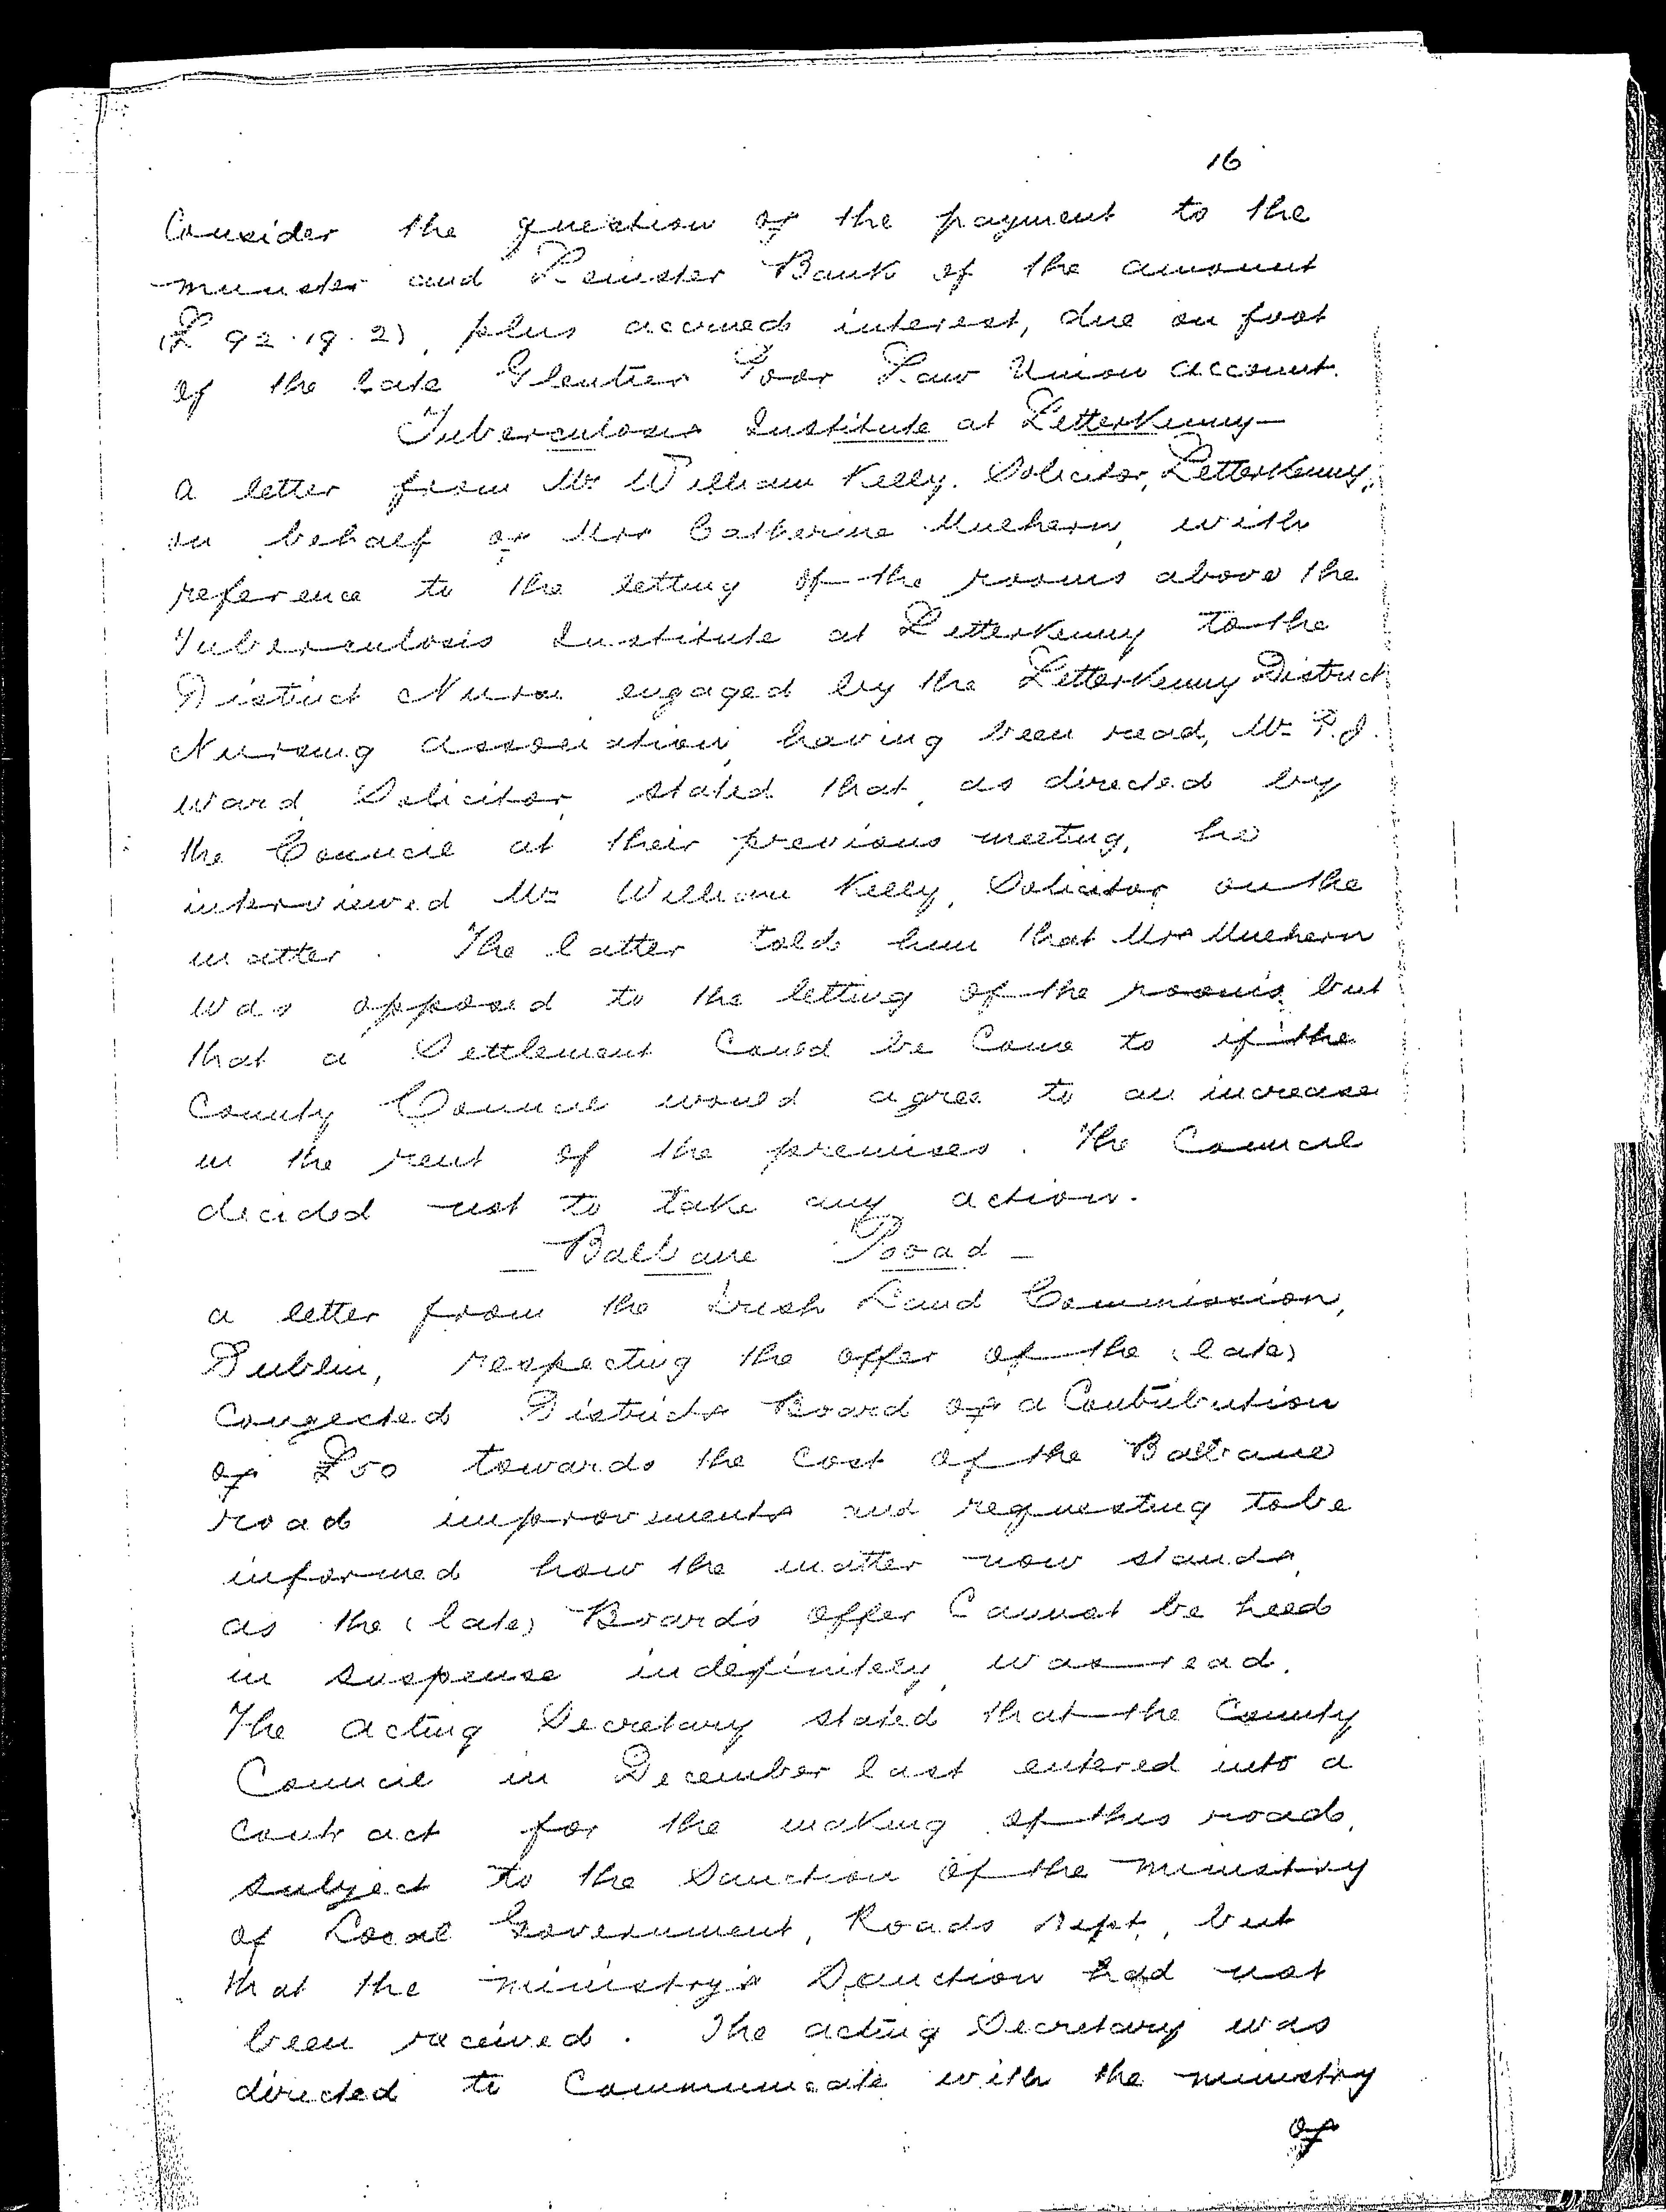 16
Consider the question of the payment to the
Munster and Leinster Bank of the amount
(£92.19.2), plus accrued interest, due on foot
of the late Glenties Poor Law Union account.
Tuberculosis Institute at Letterkenny
A letter from Mr William Kelly, Solicitor, Letterkenny,
on behalf of Mrs Catherine Mulhern, with
reference to the letting of the rooms above the
Tuberculosis Institute at Letterkenny to the
District Nurse engaged by the Letterkenny District
Nursing Association, having been read, Mr P.J.
Ward, Solicitor, stated that, as directed by
the Council at their previous meeting, he
interviewed Mr William Kelly, Solicitor on the
matter. The latter told him that Mrs Mulhern
was opposed to the letting of the rooms, but
that a Settlement Could be Come to if the
County Council would agree to an increase
in the rent of the premises. The Council
decided not to take any action.
- Balbane Road -
A letter from the Irish Land Commission,
Dublin, respecting the offer of the (late)
Congested Districts Board of a Contribution
of £50 towards the Cost of the Balbane
road improvements and requesting to be
informed how the matter now stands,
as the (late) Board's offer Cannot be held
in suspense indefinitely, was read.
The Acting Secretary stated that the County
Council in December last entered into a
Contract for the making of this road,
subject to the Sanction of the Ministry
of Local Government, Roads Dept, but
that the Ministry's Sanction had not
been received. The Acting Secretary was
directed to Communicate with the Ministry
of